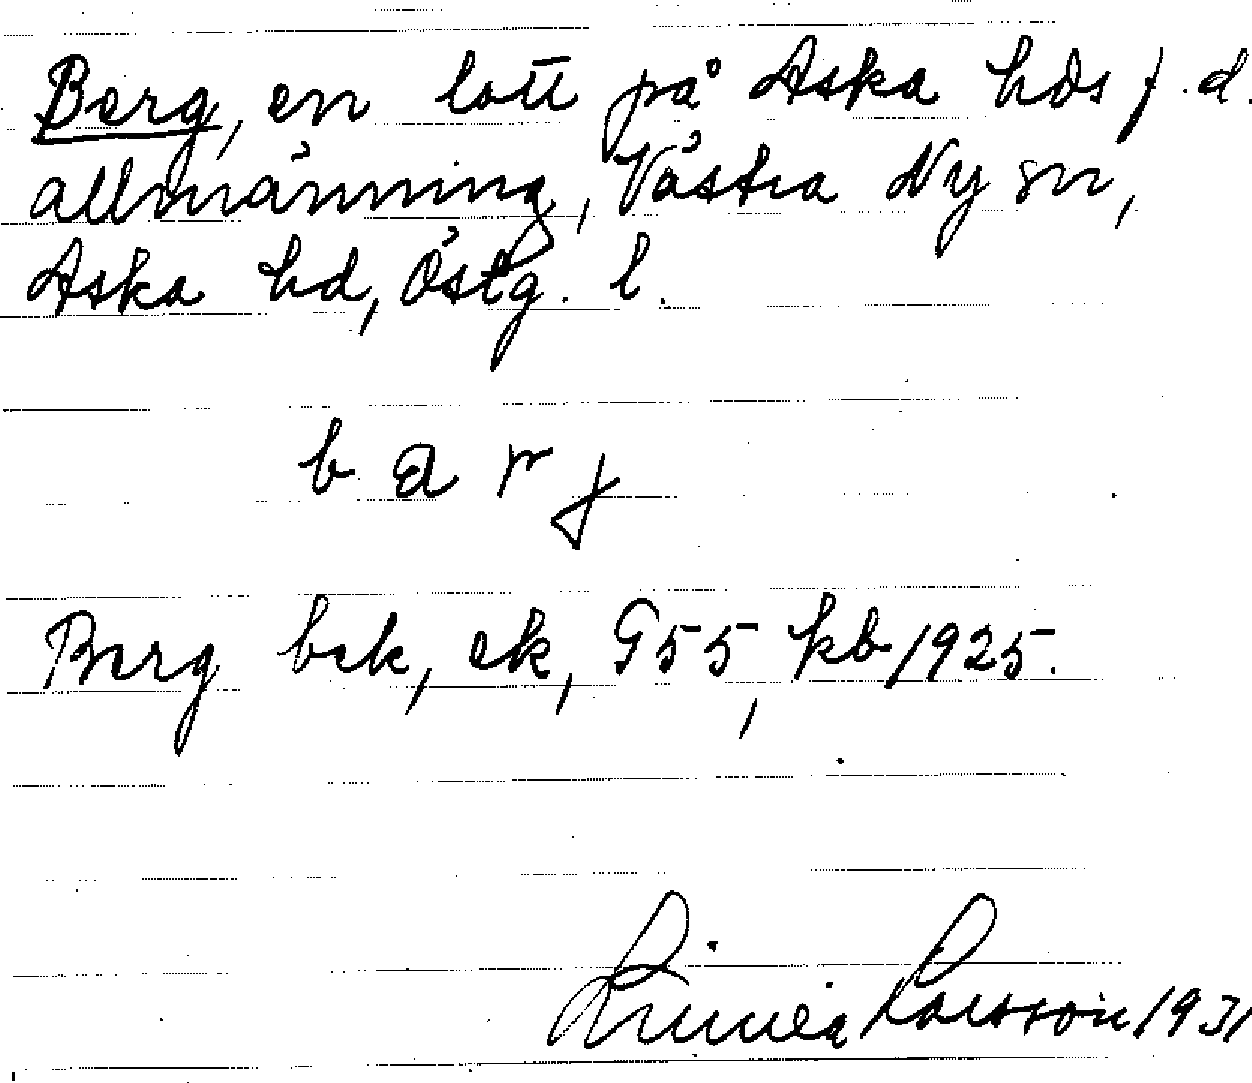 Berg, en lott på Aska hds f.d.
allmänning, Västra Ny sn,
Aska hd, Östg. l.
b a r j
Berg bek, ek, G55, kb 1925.
Linnéa Larsson 1931